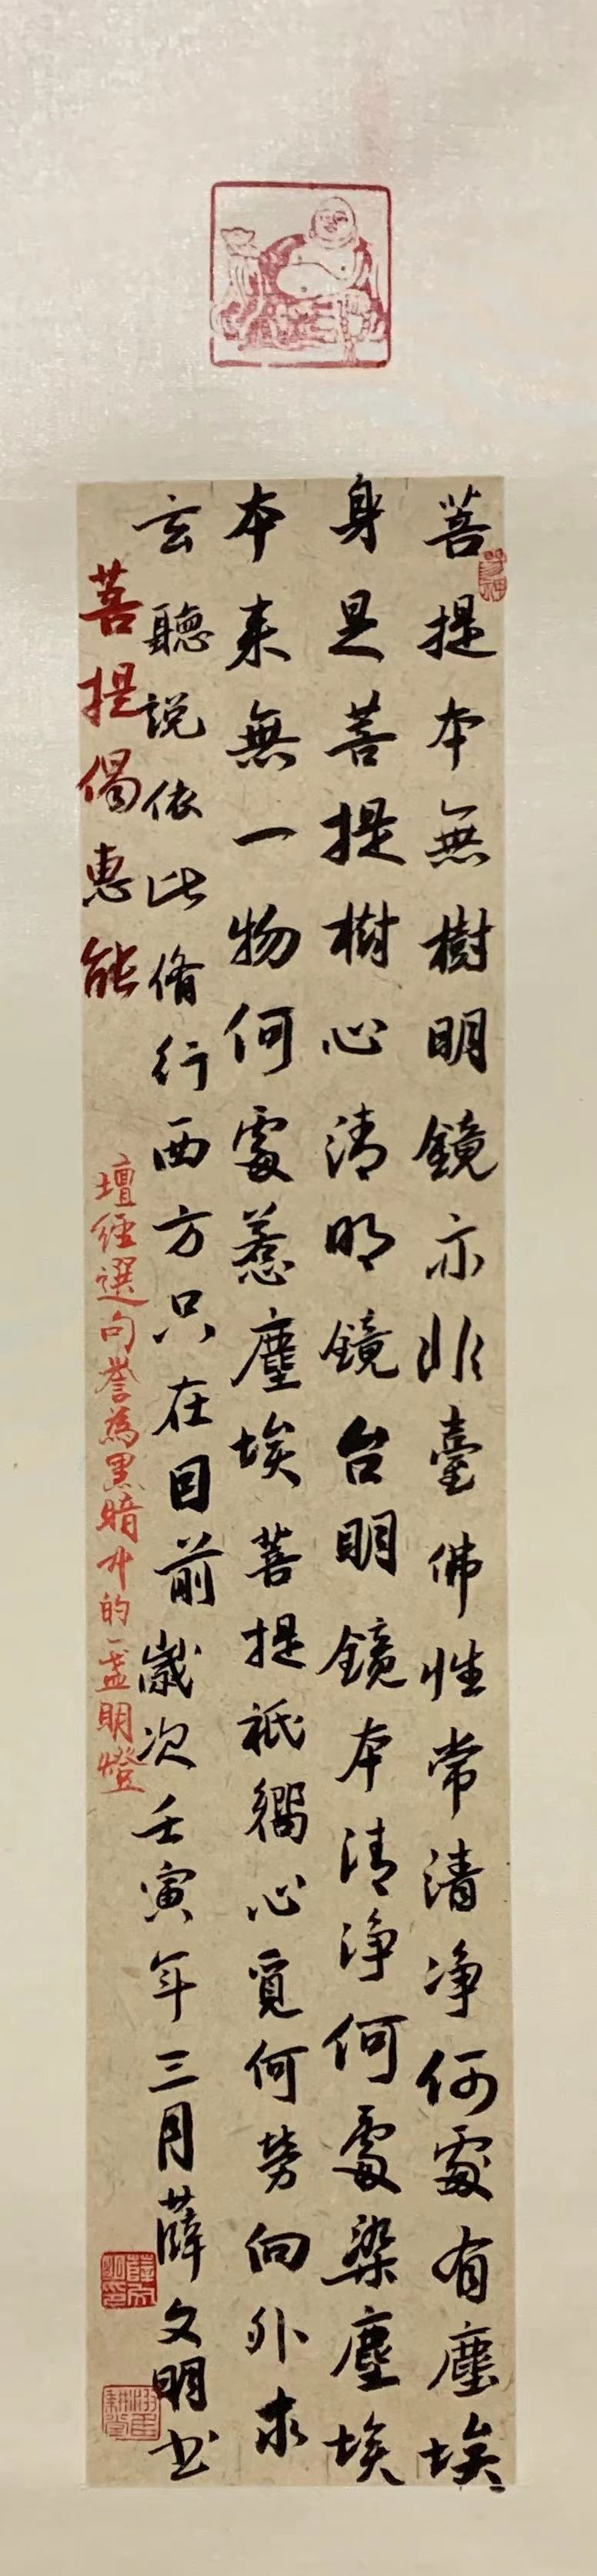 菩提本無樹明鏡亦非臺佛性常清净何處有塵埃
身是菩提樹心清明鏡台明鏡本清净何處染塵埃
本來無一物何處惹塵埃菩提祇嚮心覓何勞向外求
玄聽説依此脩行西方只在目前歲次壬寅年三月薛文明书
菩提偈惠能
壇經選句誉為黑暗中的一盏明燈